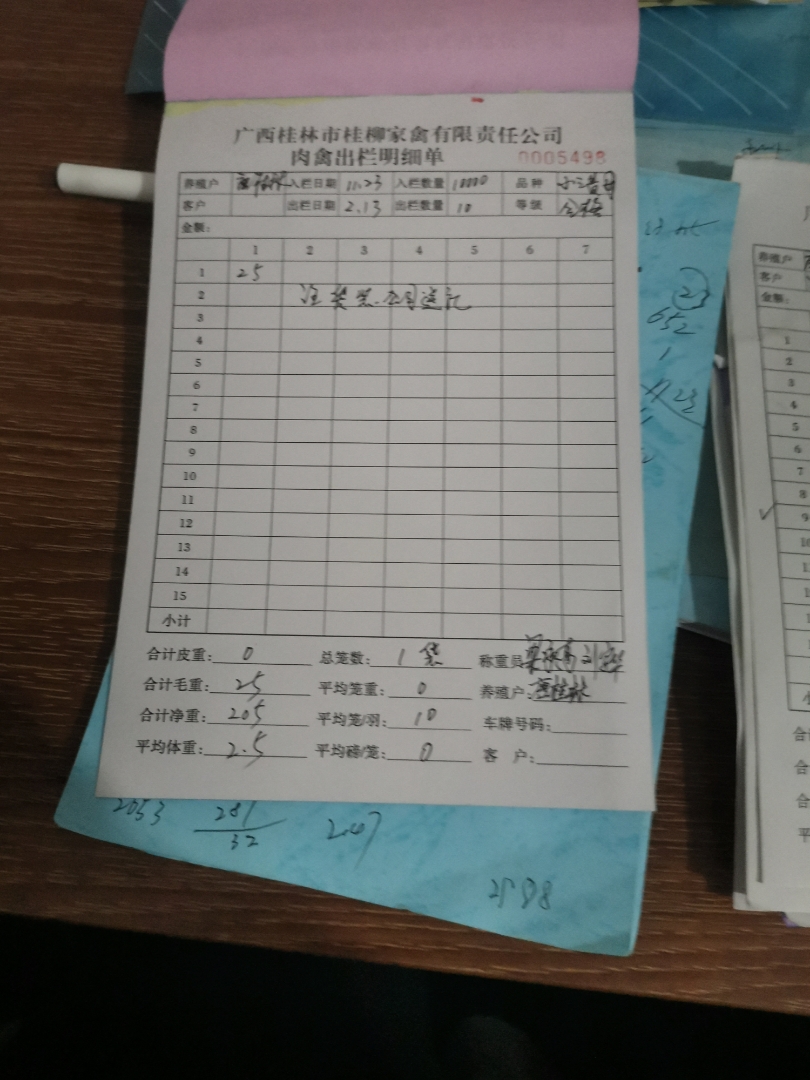 广西桂林市桂柳家禽有限责任公司
肉禽出栏明细单 0005498
养殖户 入栏日期 11.23 入栏数量 10000 品种
客户 出栏日期 2.13 出栏数量 10 等级 合格
金额:
1 2 3 4 5 6 7
1 25
2
3
4
5
6
7
8
9
10
11
12
13
14
15
小计
合计皮重: 0 总笼数: 1 称重员
合计毛重: 25 平均笼重: 0 养殖户: 桂林
合计净重: 205 平均笼/羽: 10 车牌号码:
平均体重: 2.5 平均磅/笼: 0 客 户:
2053 281 2.47
32
23
652
1
养殖户
客户
金额:
1
2
3
4
5
6
7
8
9